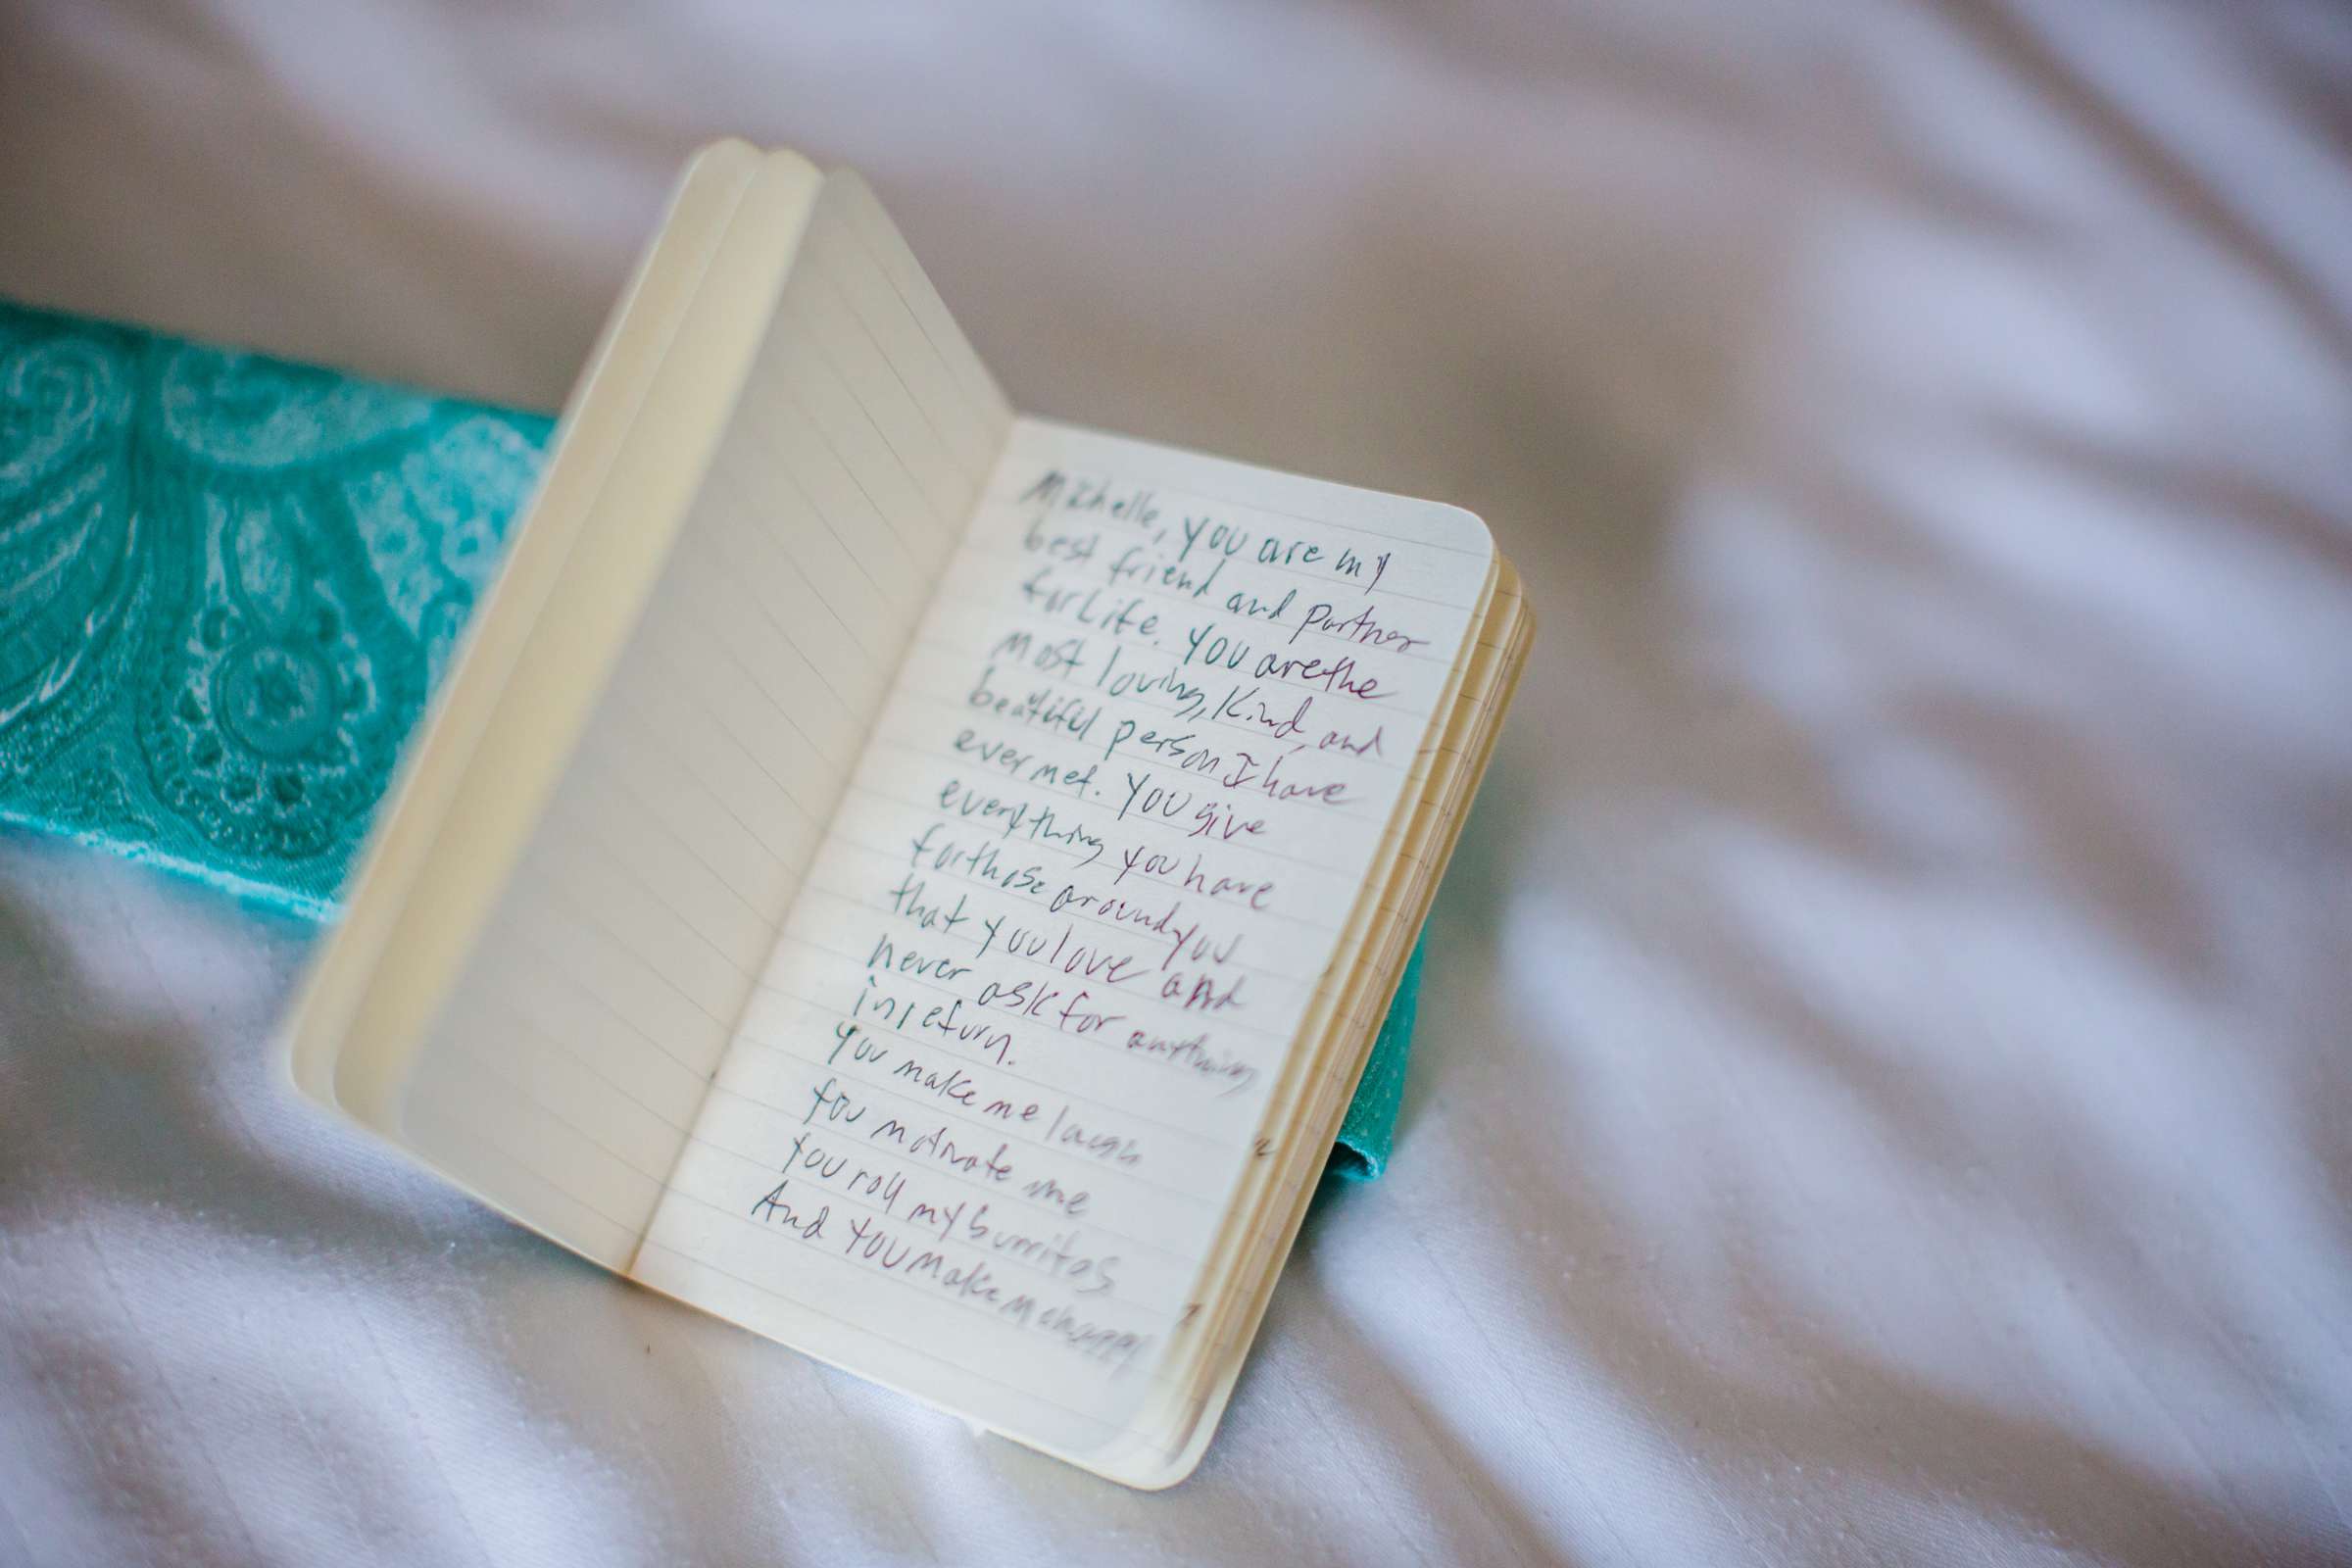 Michelle, you are my
best friend and partner
for Life. You are the
most loving, kind, and
beatiful person I have
ever met. You give
everything you have
for those around you
that you love and
never ask for anything
in return.
You make me laugh
You motivate me
You roll my burritos
And you make me happy